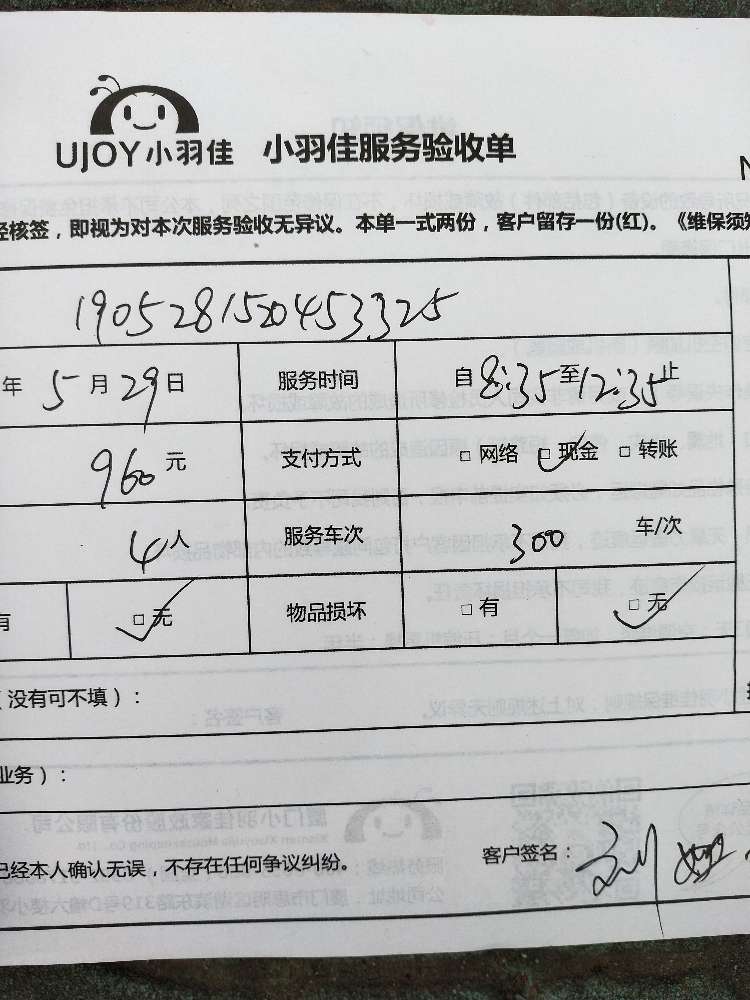 UJOY小羽佳 小羽佳服务验收单
经核签，即视为对本次服务验收无异议。本单一式两份，客户留存一份(红)。《维保须知
190528150453325
年 5 月 29 日 服务时间 自 8:35 至 12:35 止
960 元 支付方式 □ 网络 □ 现金 □ 转账
4 人 服务车次 300 车/次
有 □ 无 物品损坏 □ 有 □ 无
（没有可不填）：
业务）：
已经本人确认无误，不存在任何争议纠纷。 客户签名： 刘